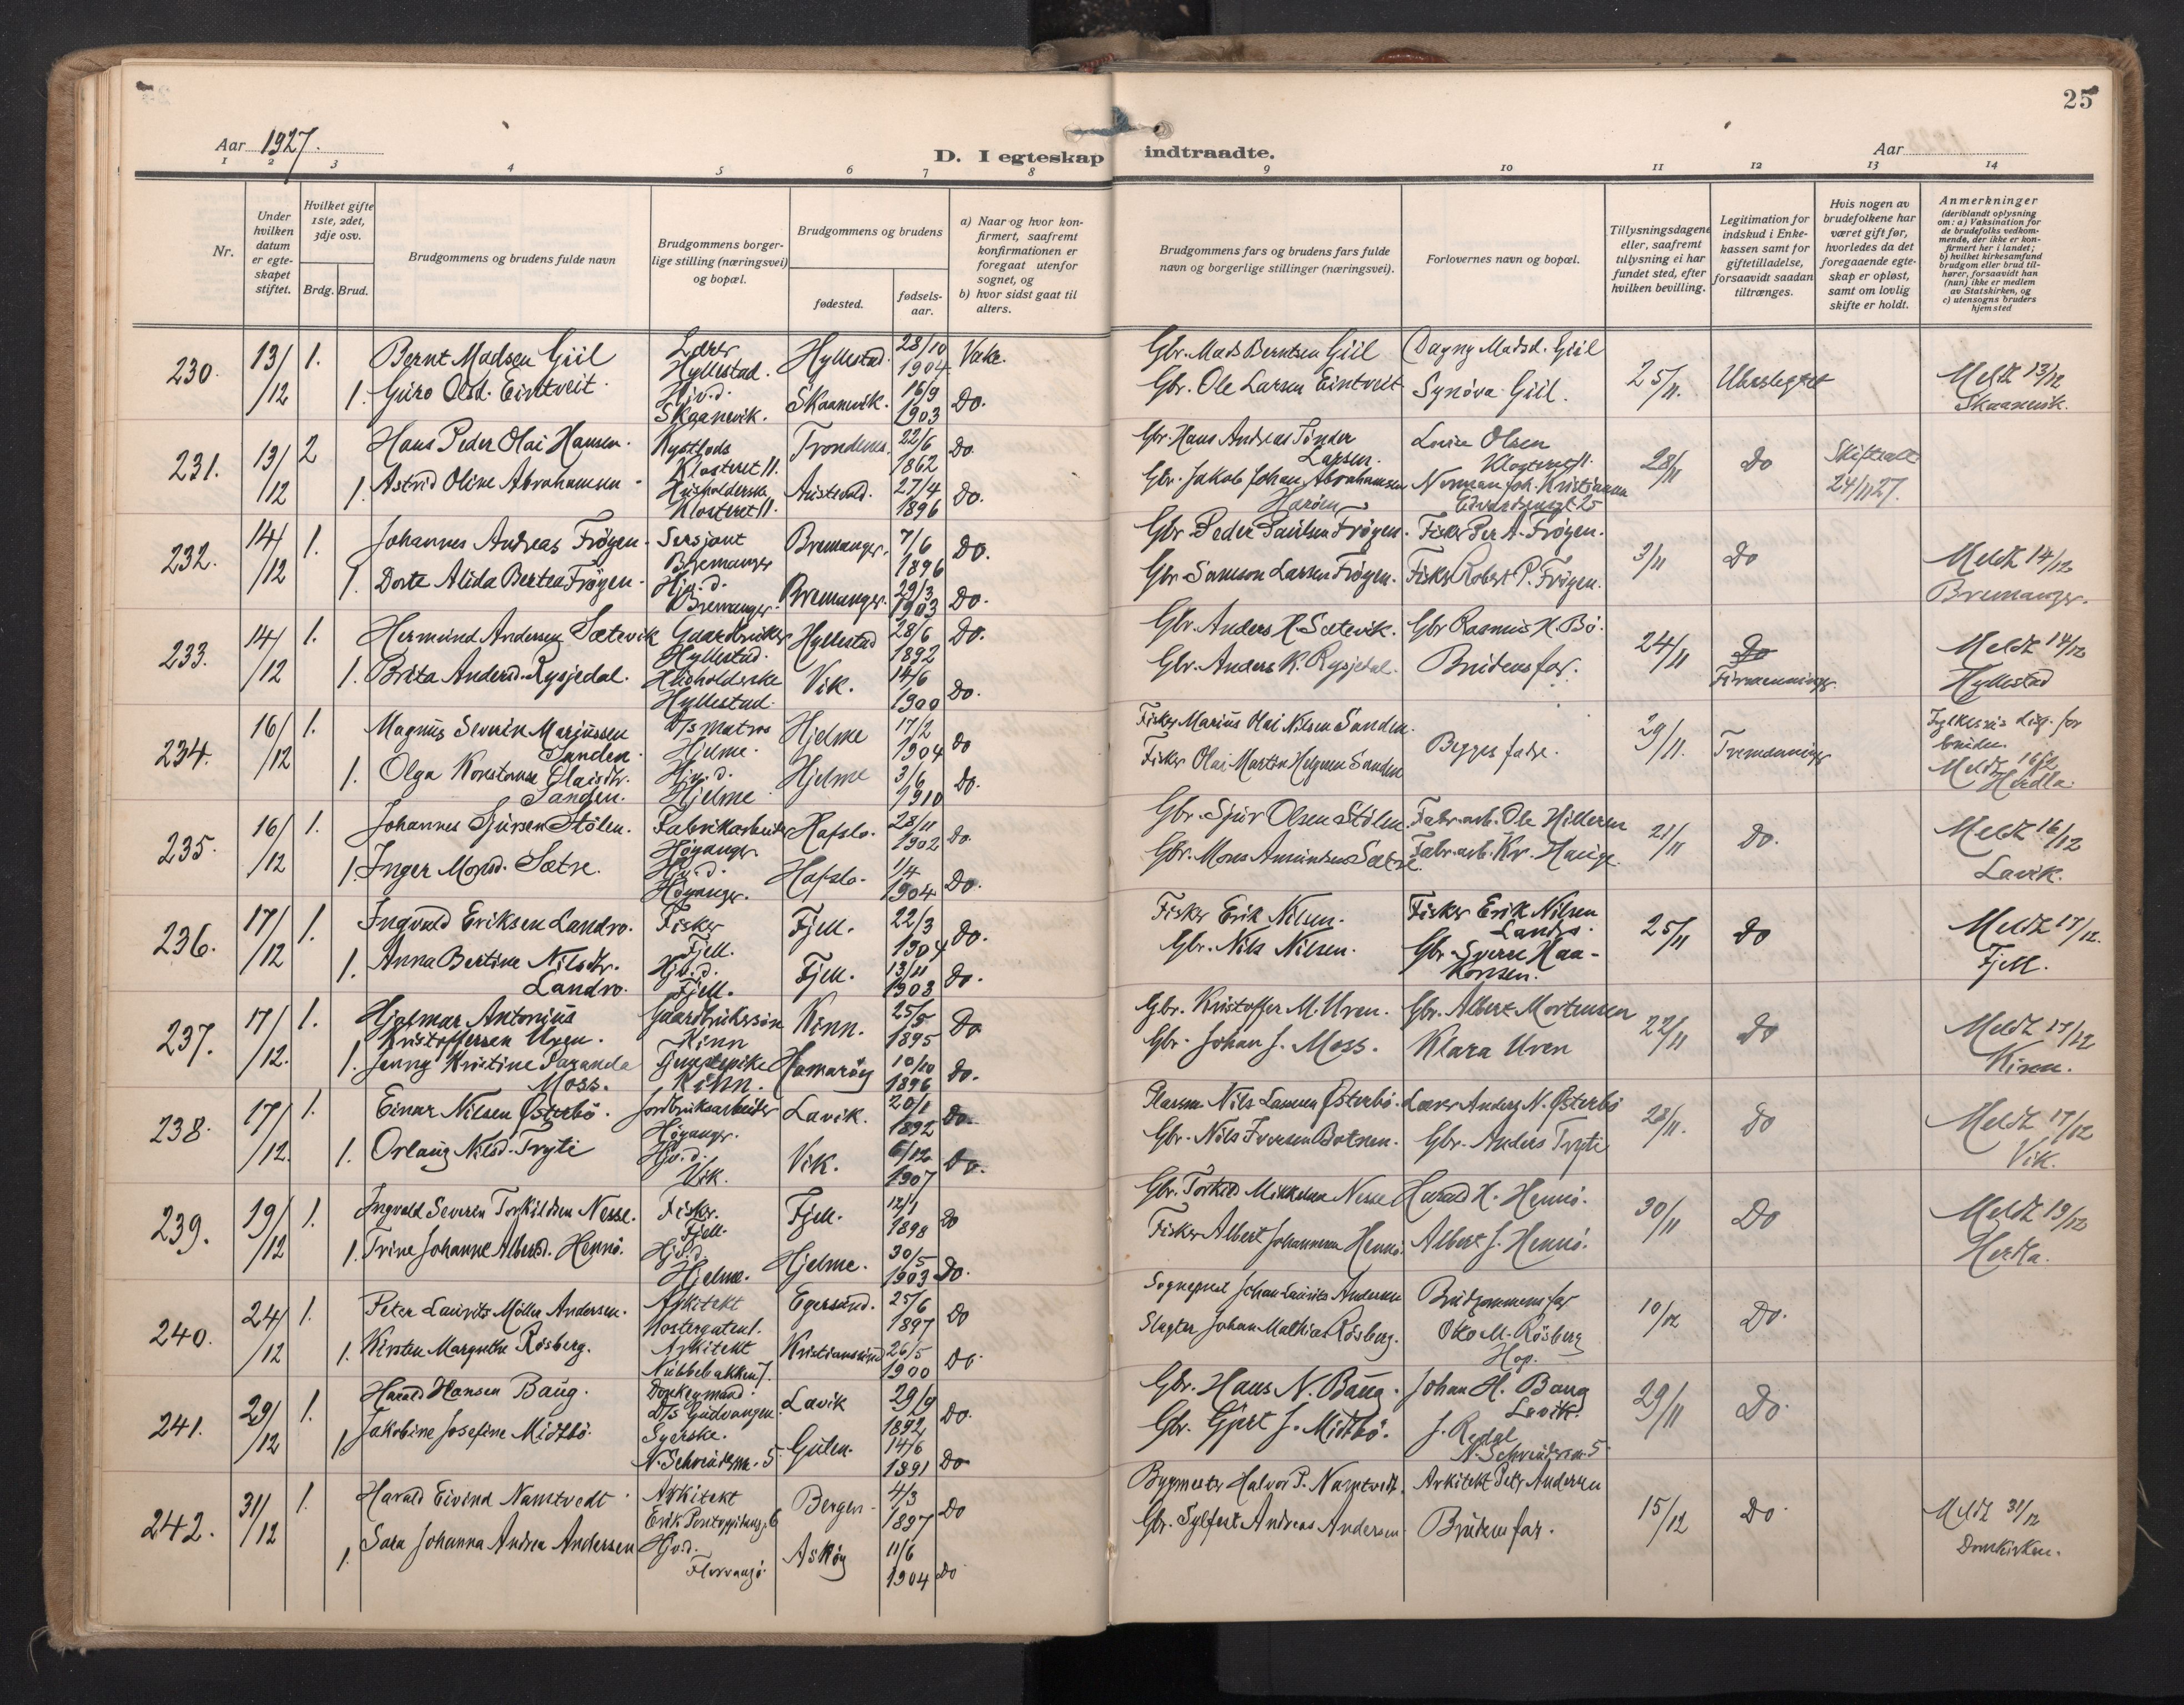 25
Aar 1927.
D. I egteskap indtraadte.
Aar
1 2 3 4 5 6 7 8 9 10 11 12 13 14
Nr.
Under hvilken datum er egteskapet stiftet.
Hvilket gifte 1ste, 2det, 3dje osv.
Brdg. Brud.
Brudgommens og brudens fulde navn
Brudgommens borgerlige stilling (næringsvei) og bopæl.
Brudgommens og brudens
fødested.
fødselsaar.
a) Naar og hvor konfirmert, saafremt konfirmationen er foregaat utenfor sognet, og
b) hvor sidst gaat til alters.
Brudgommens fars og brudens fars fulde navn og borgerlige stillinger (næringsvei).
Forlovernes navn og bopæl.
Tillysningsdagene eller, saafremt tillysning ei har fundet sted, efter hvilken bevilling.
Legitimation for indskud i Enkekassen samt for giftetilladelse, forsaavidt saadan tiltrænges.
Hvis nogen av brudefolkene har været gift før, hvorledes da det foregaaende egteskap er opløst, samt om lovlig skifte er holdt.
Anmerkninger
(deriblandt oplysning om: a) Vaksination for de brudefolks vedkommende, der ikke er konfirmert her i landet;
b) hvilket kirkesamfund brudgom eller brud tilhører, forsaavidt han (hun) ikke er medlem av Statskirken, og
c) utensogns bruders hjemsted
230. 13/12 1. Bernt Madsen Giil Lærer Hyllestad. Hyllestad. 28/10 1904 Vaks. Gbr. Mads Berntsen Giil Dagny Madsd. Giil 25/11. Ubeslegtet Meldt 13/12
1. Guro Olsd. Eintveit. Hjv.d. Skaanevik. Skaanevik. 16/9 1903 Do. Gbr. Ole Larsen Eintveit Synøva Giil. Skaanevik.
231. 13/12 2 Hans Peder Olai Hansen. Klosteret 11. Trondenes. 22/6 1862 Do Gbr. Hans Andreas Larsen. Olsen Klosteret 11. 28/11 Do 24/11 27.
1. Astrid Oline Abrahamsen Husholderske Klosteret 11. 27/4 1896 Do. Gbr. Jakob Johan Abrahamsen Norman Joh. Kristiansen
232. 14/12 1. Johannes Andreas Frøyen. Sersjant Bremanger Bremanger. 7/6 1896 Do. Gbr. Peder Paulsen Frøyen. Fisker Per A. Frøyen. 3/11 Do Meldt 14/12
1. Dorte Alida Bertea Frøyen. Hjv.d. Bremanger. Bremanger. 29/3 1903 Do. Gbr. Samson Larsen Frøyen. Fisker Robert P. Frøyen. Bremanger.
233. 14/12 1. Hermund Andersen Sætevik Gaardbruker Hyllestad. Hyllestad 28/6 1892 Do. Gbr. Anders H. Sætevik. Gbr Rasmus H. Bø. 24/11 Do Meldt 14/12
1. Brita Andersd. Rysjedal. Husholderske Hyllestad. Vik. 14/6 1900 Do. Gbr. Anders K. Rysjedal. Brudens far. Firmenninger. Hyllestad
234. 16/12 1. Magnus Severin Mariussen Sanden. D/s Matros Hjelme. Hjelme 17/2 1904 Do Fisker Marius Olai Nilsen Sanden. Begges fedre. 29/11. Tremenninger for bruden.
1. Olga Konstanse Olaisdtr. Sanden. Hjv.d. Hjelme Hjelme 3/6 1910 Do. Fisker Olai Martin Helgesen Sanden Meldt 16/12 Herdla.
235. 16/12 1. Johannes Sjursen Stølen. Fabrikarbeider Høyanger. Hafslo. 28/11 1902 Do. Gbr. Sjur Olsen Stølen. Fabr.arb. Ole Hilleren 21/11 Do. Meldt 16/12
1. Inger Monsd. Sætre. Hjv.d. Høyanger. Hafslo. 1/4 1904 Do. Gbr. Mons Amundsen Sætre. Fabr.arb. Kr. Hauge. Lavik.
236. 17/12 1. Ingvald Eriksen Landro. Fisker Fjell. Fjell. 22/3 1904 Do. Fisker Erik Nilsen. Fisker Erik Nilsen Landro. 25/11 Do Meldt 17/12.
1. Anna Bertine Nilsdtr. Landro. Hjv.d. Fjell. Fjell. 13/11 1903 Do. Gbr. Nils Nilsen. Gbr. Sverre Haakonsen. Fjell.
237. 17/12. 1. Hjalmar Antonius Kristoffersen Uren. Gaardbrukersøn Kinn Kinn. 25/5 1895 Do Gbr. Kristoffer M. Uren. Gbr. Albert Mortensen 22/11 Do Meldt 17/12
1. Jenny Kristine Moss. Tjenestepike Kinn. Hamarøy 10/10 1896 Do. Gbr. Johan J. Moss. Klara Uren Kinn.
238. 17/12. 1. Einar Nilsen Østerbø. Jordbruksarbeider Høyanger. Lavik. 20/1 1892 Do. Nils Larssen Østerbø. Lærer Anders N. Østerbø 28/11. Do Meldt 17/12
1. Orlaug Nilsd. Tryti Hjv.d. Vik. Vik. 6/12 1907 Do. Gbr. Nils Iversen Botnen. Gbr. Anders Tryti Vik.
239. 19/12 1. Ingvald Severin Torkildsen Nesse. Fisker. Fjell. Fjell. 12/1 1898 Do Gbr. Torkild Mikkelsen Nesse Harald H. Hennø. 30/11 Do Meldt 19/12
1. Trine Johanne Albertsd. Hennø. Hjv.d. Hjelme. Hjelme. 30/5 1903 Do. Fisker Albert Johannesen Hennø. Albert J. Hennø. Herdla.
240. 24/12 1. Peter Laurits Møller Andersen. Arkitekt Egersund. 25/6 1897 Do Sogneprest Johan Laurits Andersen Brudgommens far 10/12 Do.
1. Kirsten Margrethe Røsberg. Arkitekt Nubbebakken 7. Kristianssund 26/5 1900 Do. Slagter Johan Mathias Røsberg. Otto M. Røsberg Hop.
241. 29/12 1. Harald Hansen Baug. Donkeymand D/s Gudvangen. Lavik 29/9 1892 Do. Gbr. Hans N. Baug. Johan H. Baug Lavik. 29/11 Do.
1. Jakobine Josefine Midtbø. Syerske. Gulen. 14/6 1891 Do Gbr. Gjert J. Midtbø. J. Redal
242. 31/12 1. Harald Eivind Namtvedt Arkitekt Bergen 4/3 1897 Do Bygmester Halvor P. Namtvedt. Arkitekt Peter Andersen 15/12 Do Meldt 31/12
1. Sara Johanna Andrea Andersen Hjv.d. Florvaagø. Askøy 11/6 1904 Do Gbr. Sylfest Andreas Andersen. Brudens far. Domkirken.